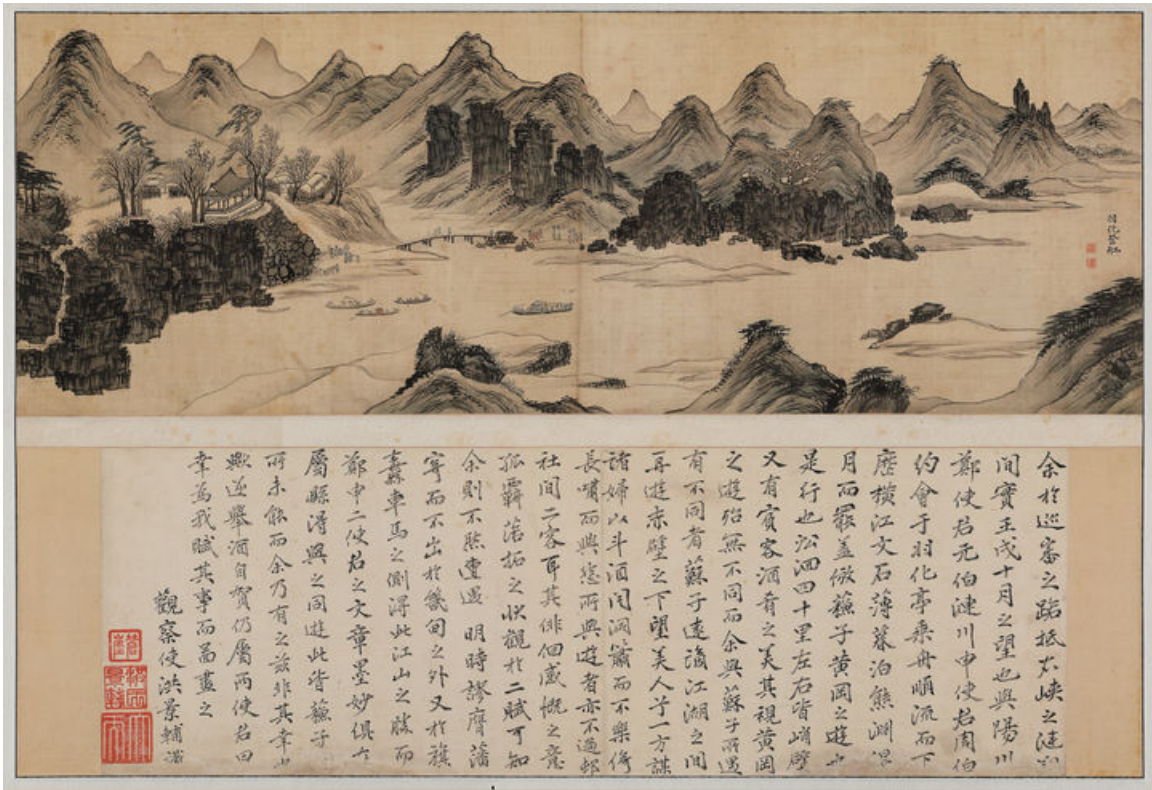 羽化登船
余於巡審之路抵大峽之漣
間實壬戌十月之望也與陽川
鄭使君元伯漣川申使君周伯
約會于羽化亭乘舟順流而下
歷橫江文石薄暮泊熊淵
月而罷盖倣蘓子黃岡之遊也
是行也㳂洄四十里左右皆峭壁
又有賓客酒肴之美其視黃岡
之遊殆無不同而余與蘇子所遇
有不同者蘇子遠謫江湖之間
再遊赤壁之下望美人兮一方謀
諸婦以斗酒聞洞簫而不樂倚
長嘯而興悲所與遊者亦不過邨
社間二客耳其俳佪感慨之意
孤羇落拓之狀觀於二賦可知
余則不然遭遇明時謬膺藩
寄而不出於畿甸之外又於旗
纛車馬之側得此江山之勝而
鄭申二使君之文章墨妙俱在
屬縣得與之同遊此皆蘓子
所未能而余乃有之玆非其幸也
歟遂擧酒自賀仍屬兩使君曰
幸爲我賦其事而啚畫之
觀察使洪景輔識